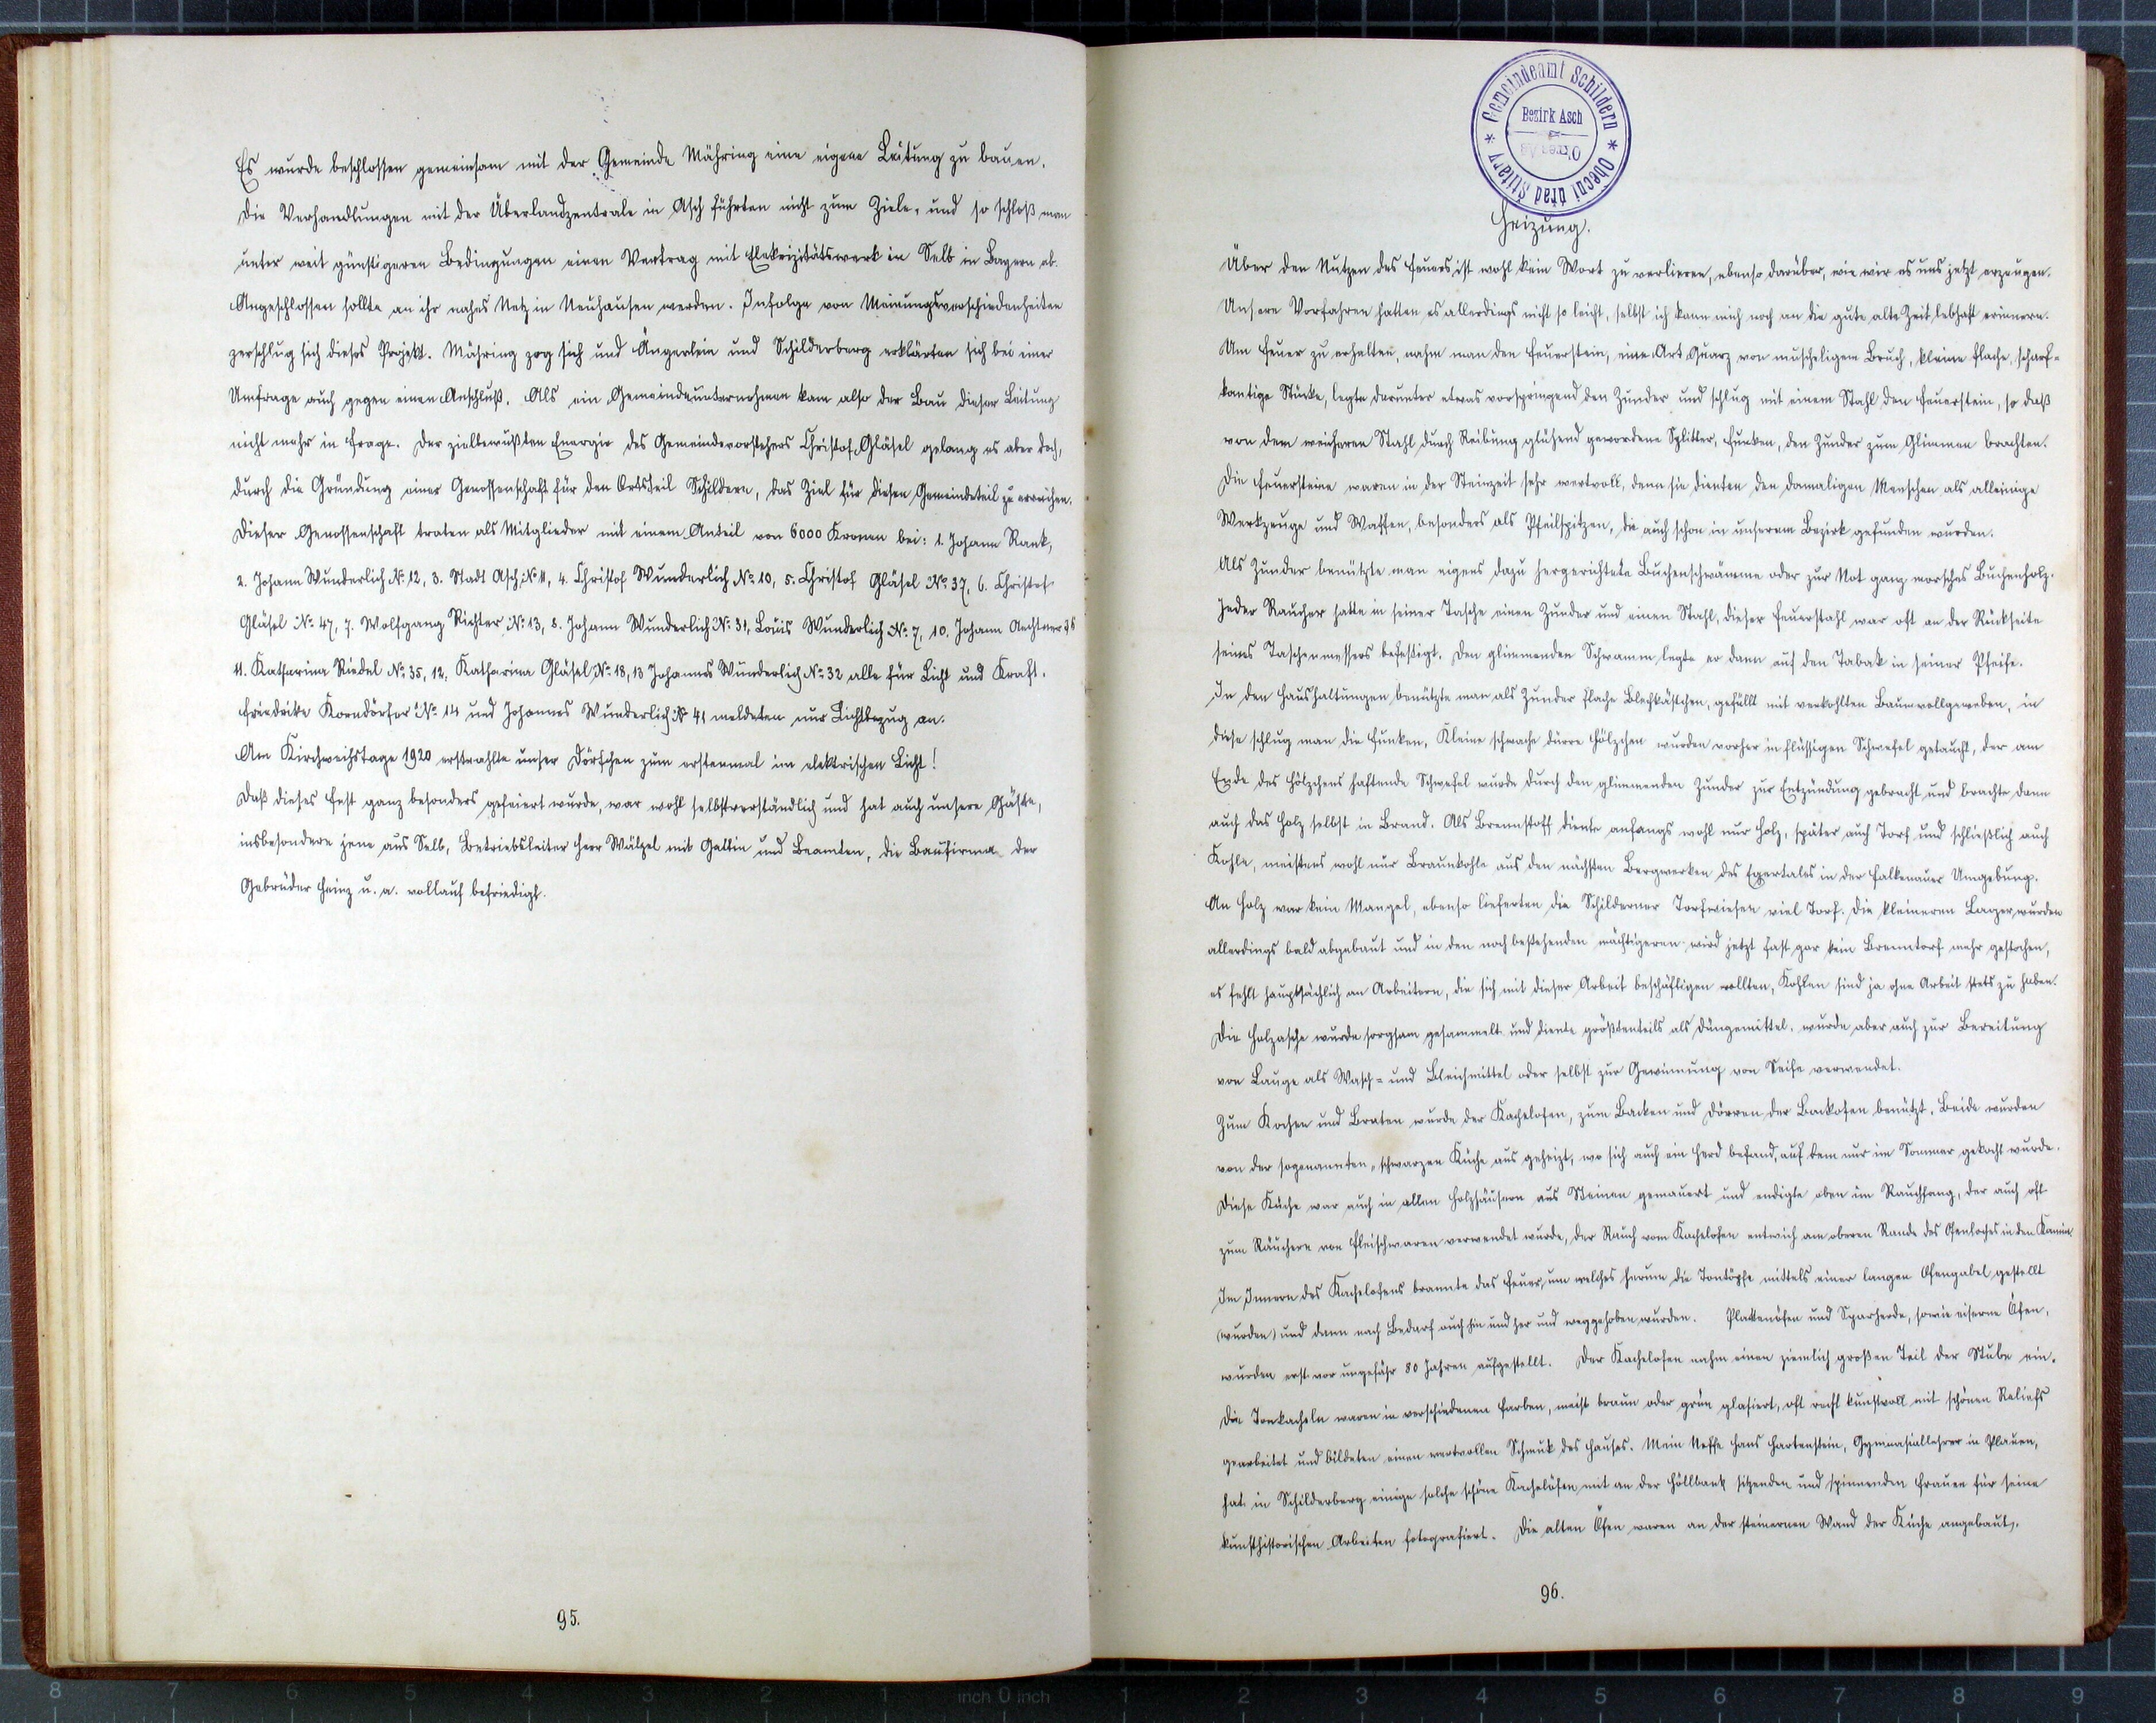 Es wurde beschlossen gemeinsam mit der Gemeinde Mähring eine eigene Leitung zu bauen.
Die Verhandlungen mit der Überlandzentrale in Asch führten nicht zum Ziele, und so schloß man
unter weit günstigeren Bedingungen einen Vertrag mit Elekrizitätswerk in Selb in Bayern ab.
Angeschlossen sollte an ihr nahes Netz in Neuhausen werden. Infolge von Meinungsverschiedenheiten
zerschlug sich dieses Projekt. Mähring zog sich und Ängerlein und Schilderberg erklärten sich bei einer
Umfrage auch gegen einen Anschluß. Als ein Gemeindeunternehmen kam also der Bau dieser Leitung
nicht mehr in Frage. Der zielbewußten Energie des Gemeindevorstehers Christof Gläsel gelang es aber doch,
durch die Gründung einer Genossenschaft für den Ortsteil Schildern, das Ziel für diesen Gemeindeteil zu erreichen.
Dieser Genossenschaft traten als Mitglieder mit einem Anteil von 6000 Kronen bei: 1. Johann Rank,
2. Johann Wunderlich No. 12, 3. Stadt Asch No. 11, 4. Christof Wunderlich No. 10, 5. Christof Gläsel No. 37, 6. Christof
Gläsel No. 47, 7. Wolfgang Richter No. 13, 8. Johann Wunderlich No. 31, Louis Wunderlich No. 7, 10. Johann
11. Katharina Riedel No. 35, 12. Katharina Gläsel No. 18, 13 Johannes Wunderlich No. 32 alle für Licht und Kraft.
Friedrike Korndörfer No. 14 und Johannes Wunderlich No 41 meldeten nur Lichtbezug an.
Am Kirchweihstage 1920 erstrahlte unser Dörfchen zum erstenmal im elektrischen Licht!
Daß dieses Fest ganz besonders gefeiert wurde, war wohl selbstverständlich und hat auch unsere Gäste,
insbesondere jene aus Selb, Betriebsleiter Herr Wätzel mit Gattin und Beamten, die Baufirma der
Gebrüder Heinz u. a. vollauf befriedigt.
95.
* Gemeindeamt Schildern * Obecní úřad Štítary
Bezirk Asch
Okres Aš
Heizung.
Über den Nutzen des Feuers, ist wohl kein Wort zu verlieren, ebenso darüber, wie wir es uns jetzt erzeugen.
Unsere Vorfahren hatten es allerdings nicht so leicht, selbst ich kann mich noch an die gute alte Zeit lebhaft erinnern.
Um Feuer zu erhalten, nahm man den Feuerstein, eine Art Quarz von muscheligem Bruch, kleine flache, scharf-
kantige Stücke, legte darunter etwas vorspringend den Zunder und schlug mit einem Stahl den Feuerstein, so daß
von dem weicheren Stahl durch Reibung glühend gewordene Splitter, Funken, den Zunder zum Glimmen brachten.
Die Feuersteine waren in der Steinzeit sehr wertvoll, denn sie dienten den damaligen Menschen als alleinige
Werkzeuge und Waffen, besonders als Pfeilspitzen, die auch schon in unserem Bezirk gefunden wurden.
Als Zunder benützte man eigens dazu hergerichtete Buchenschwämme oder zur Not ganz morsches Buchenholz.
Jeder Raucher hatte in seiner Tasche einen Zunder und einen Stahl, dieser Feuerstahl war oft an der Rückseite
seines Taschenmessers befestigt. Den glimmenden Schwamm legte er dann auf den Tabak in seiner Pfeife.
In den Haushaltungen benützte man als Zunder flache Blechkästchen, gefüllt mit verkohlten Baumwollgeweben, in
diese schlug man die Funken, Kleine schwache dürre Hölzchen wurden vorher in flüssigen Schwefel getaucht, der am
Ende des Hölzchens haftende Schwefel wurde durch den glimmenden Zunder zur Entzündung gebracht und brachte dann
auch das Holz selbst in Brand. Als Brennstoff diente anfangs wohl nur Holz, später auch Torf und schließlich auch
Kohle, meistens wohl nur Braunkohle aus den nächsten Bergwerken des Egertales in der Falkenauer Umgebung.
An Holz war kein Mangel, ebenso lieferten die Schilderner Torfwiesen viel Torf. Die kleineren Lager wurden
allerdings bald abgebaut und in den noch bestehenden mächtigeren wird jetzt fast gar kein Brenntorf mehr gestochen,
es fehlt hauptsächlich an Arbeitern, die sich mit dieser Arbeit beschäftigen wollten, Kohlen sind ja ohne Arbeit stets zu haben.
Die Holzasche wurde sorgsam gesammelt und diente größtenteils als Düngemittel, wurde aber auch zur Bereitung
von Lauge als Wasch- und Bleichmittel oder selbst zur Gewinnung von Seife verwendet.
Zum Kochen und Braten wurde der Kachelofen, zum Backen und Dörren der Backofen benützt. Beide wurden
von der sogenannten „schwarzen Küche aus geheizt, wo sich auch ein Herd befand, auf dem nur im Sommer gekocht wurde.
Diese Küche war auch in allen Holzhäusern aus Steinen gemauert und endigte oben im Rauchfang, der auch oft
zum Räuchern von Fleischwaren verwendet wurde, der Rauch vom Kachelofen entwich am oberen Rande des Ofenloches in den Kamin.
Im Innern des Kachelofens brannte das Feuer, um welches herum die Tontöpfe mittels einer langen Ofengabel gestellt
(wurden) und dann nach Bedarf auch hin und her und weggehoben wurden. Plattenöfen und Sparherde, sowie eiserne Öfen,
wurden erst vor ungefähr 80 Jahren aufgestellt. Der Kachelofen nahm einen ziemlich großen Teil der Stube ein.
Die Tonkacheln waren in verschiedenen Farben, meist braun oder grün glasiert, oft recht kunstvoll mit schönen Reliefs
gearbeitet und bildeten einen wertvollen Schmuck des Hauses. Mein Neffe Hans Hartenstein, Gymnasiallehrer in Plauen,
hat in Schilderberg einige solche schöne Kachelöfen, mit an der Höllbank sitzenden und spinnenden Frauen für seine
kunsthistorischen Arbeiten fotografiert. Die alten Öfen waren an der steinernen Wand der Küche angebaut.
96.